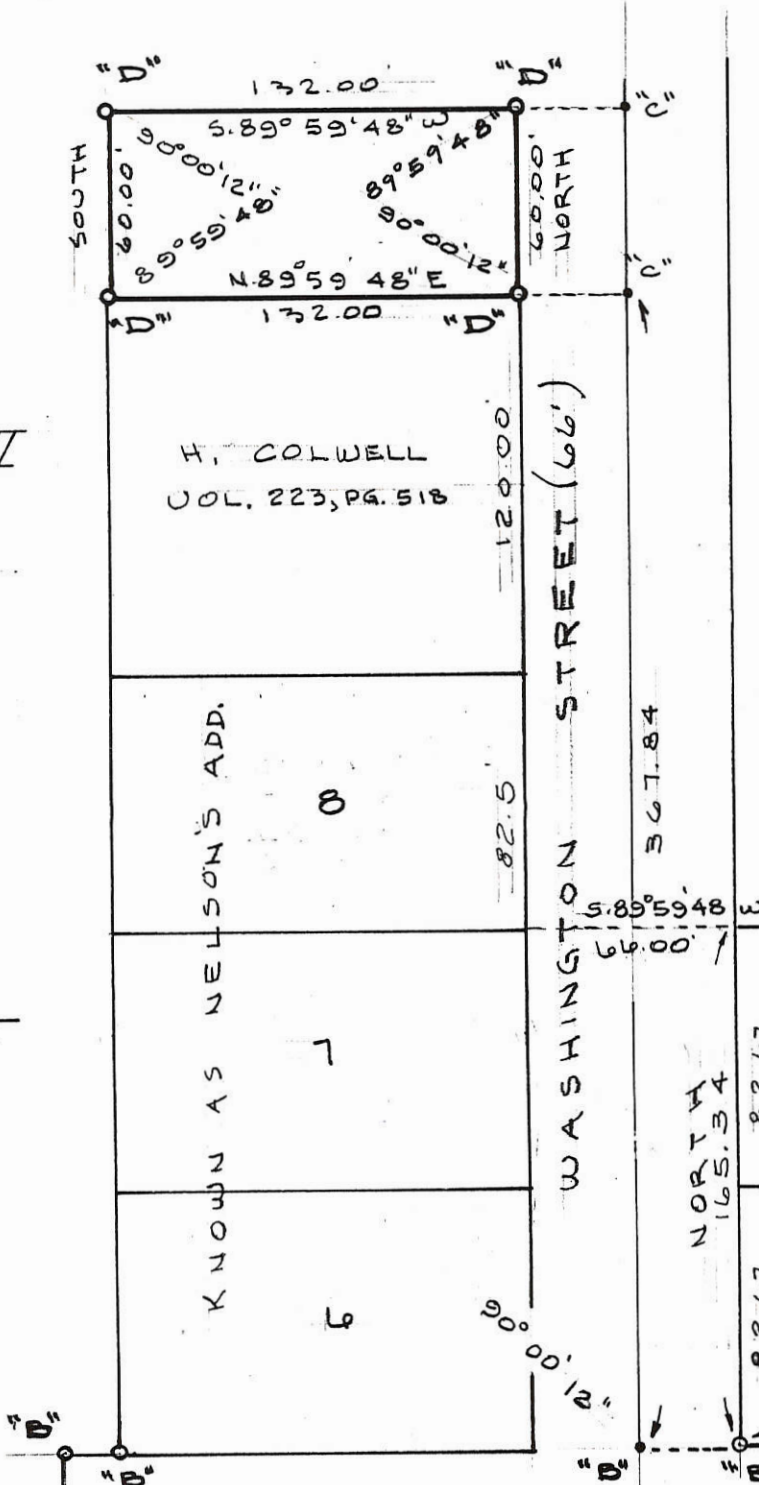 "D"
132.00'
"D"
"C"
S.89° 59' 48" W
SOUTH
60.00'
90°00'12"
89°59'48"
89°59'48"
90°00'12"
60.00'
NORTH
N.89°59'48" E
132.00
"D"
"D"
"C"
H. COLWELL
VOL. 223, PG. 518
120.00'
WASHINGTON STREET (66')
367.84
KNOWN AS NELSON'S ADD.
8
82.5'
S.89°59'48 W
66.00'
7
NORTH
165.34
6
90° 00' 12"
"B"
"B"
"B"